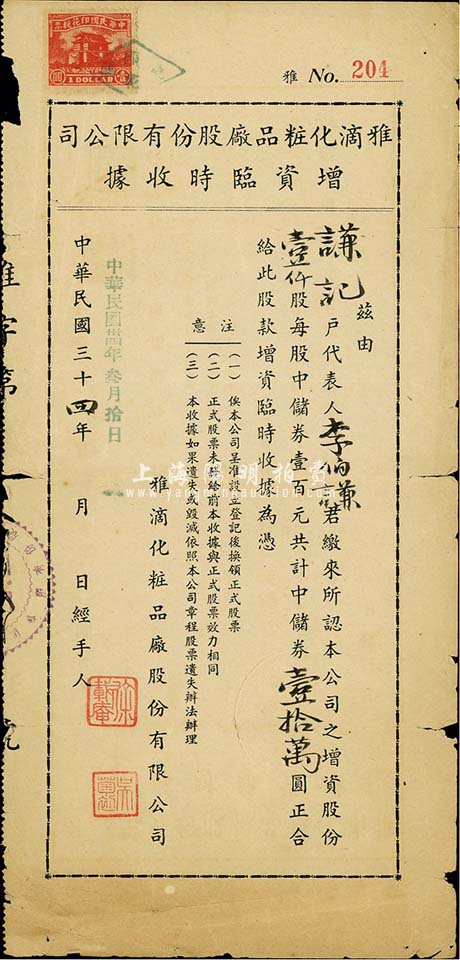 中華民國印花稅票
壹圓
1 DOLLAR
雅 No. 204
雅滴化粧品廠股份有限公司
增資臨時收據
茲由
謙記戶代表人李伯謙君繳來所認本公司之增資股份
壹仟股每股中儲券壹百元共計中儲券壹拾萬圓正合
給此股款增資臨時收據為憑
注意
(一) 俟本公司呈准設立登記後換領正式股票
(二) 正式股票未發給前本收據與正式股票效力相同
(三) 本收據如果遺失或毀滅依照本公司章程股票遺失辦法辦理
雅滴化粧品廠股份有限公司
中華民國卅四年叁月拾日
中華民國三十四年 月 日經手人
雅字第
號
上海陽明拍賣
www.yangmingauction.com